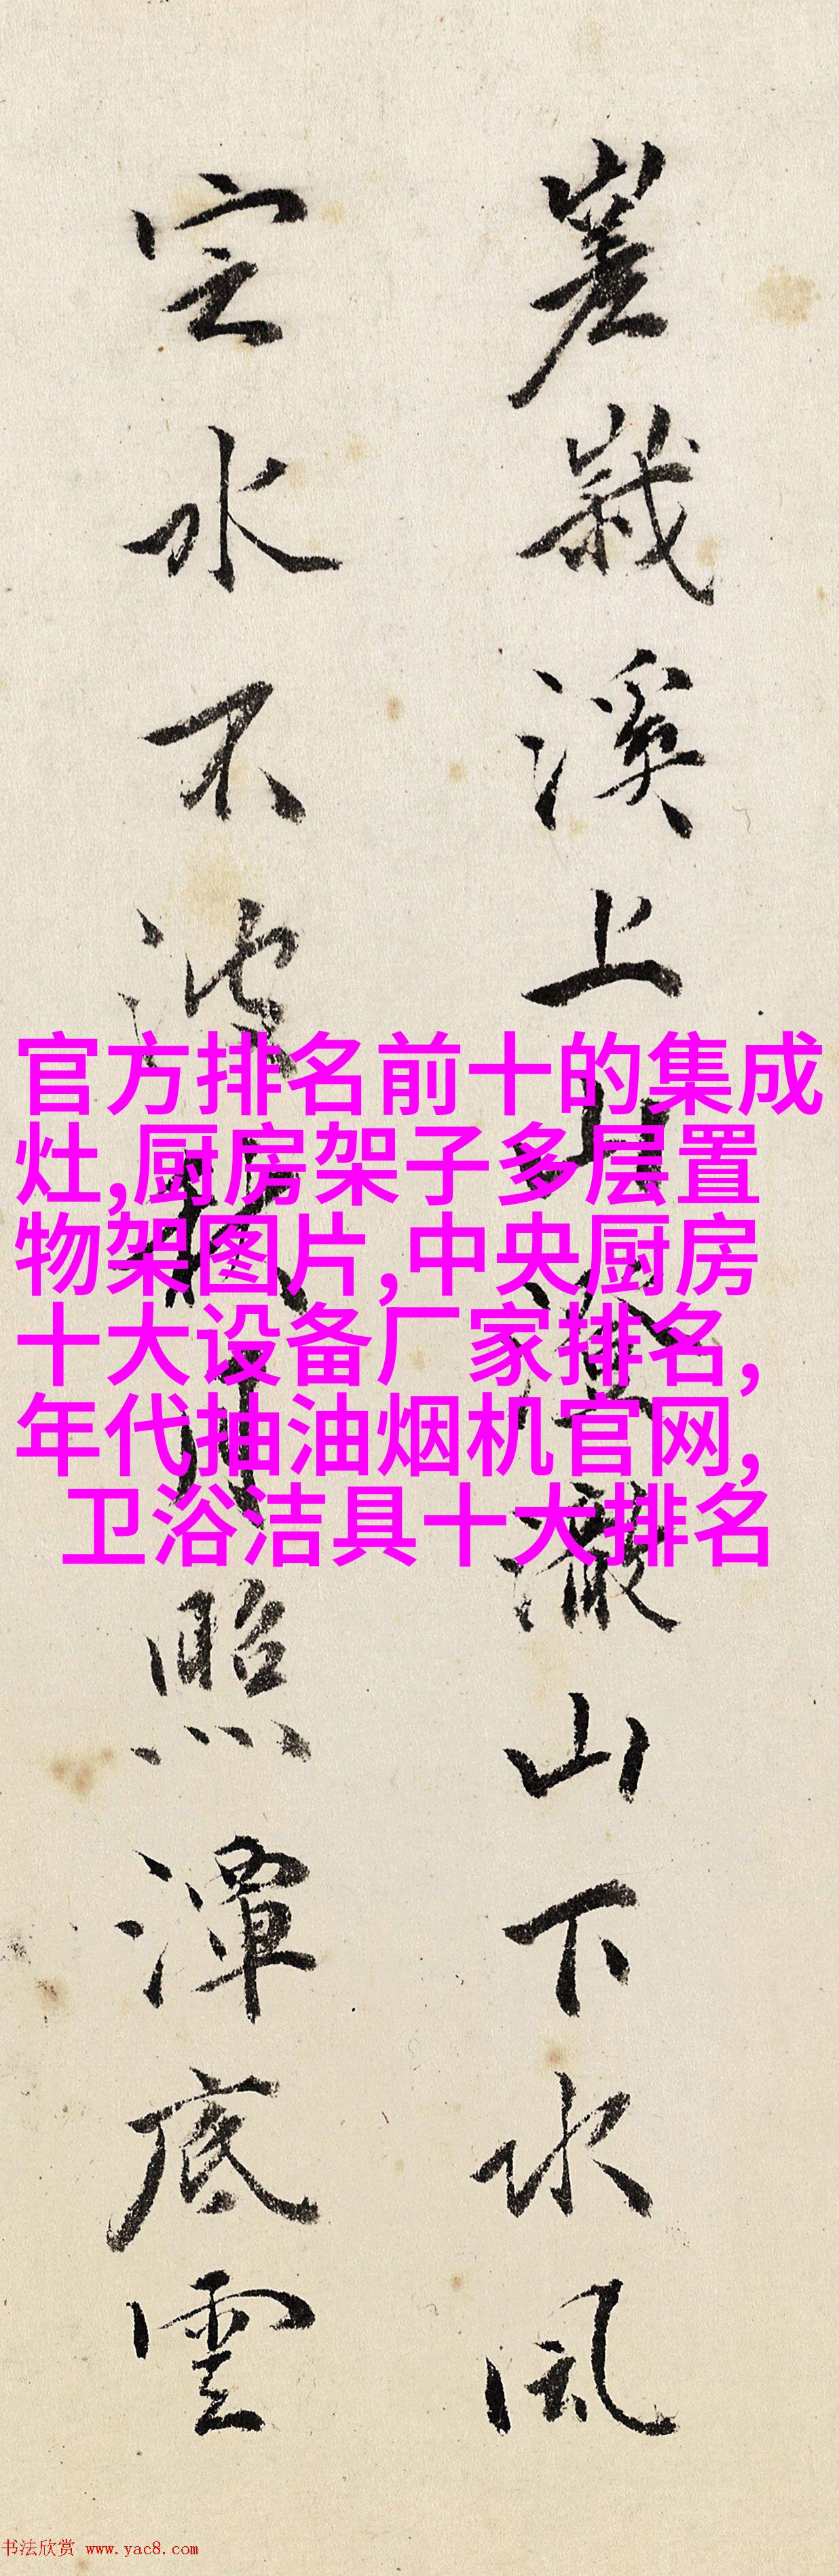 嵳峩溪上山澄澈山下水風
定水不波月照潭底雲
官方排名前十的集成
灶,厨房架子多层置
物架图片,中央厨房
十大设备厂家排名,
年代抽油烟机官网,
卫浴洁具十大排名
书法欣赏 www.yac8.com